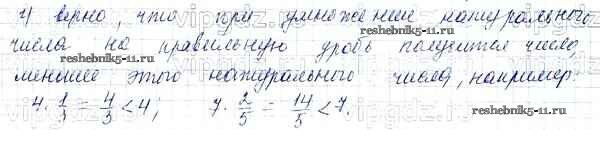 г) верно, что при умножение натурального
числа на правильную дробь получится число,
меньшее этого натурального числа, например:
4·1/3=4/3<4; 7·2/5=14/5<7.
reshebnik5-11.ru
reshebnik5-11.ru
reshebnik5-11.ru